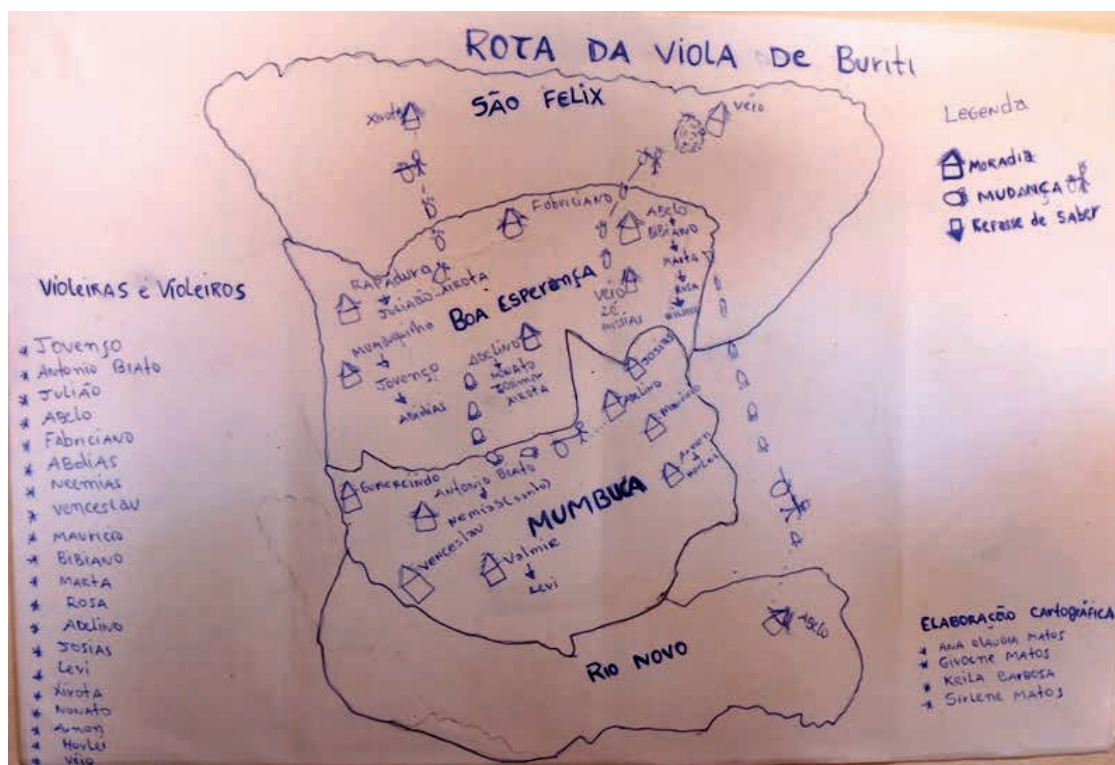 ROTA DA VIOLA DE BURITI
SÃO FELIX
Xirota
Véio
Legenda
MORADIA
MUDANÇA
Repasse de Saber
FABRICIANO
ABELO
BIBIANO
MARTA
ROSA
RAPADURA
JULIÃO XIROTA
BOA ESPERANÇA
VÉIO
ZÉ
MESSIAS
MUMBUQUINHO
JOVENÇO
ABDIAS
ADELINO
NONATO
JOSIMAR
XIROTA
JOSIAS
Adelino
Maurício
GUMERCINDO
ANTONIO BIATO
NEMIAS (SANTO)
MUMBUCA
Arnon
VENCESLAU
Valmir
LEVI
RIO NOVO
ABELO
VIOLEIRAS E VIOLEIROS
* JOVENÇO
* Antonio Biato
* JULIÃO
* ABELO
* FABRICIANO
* ABDIAS
* NEEMIAS
* VENCESLAU
* MAURICIO
* BIBIANO
* MARTA
* ROSA
* ADELINO
* JOSIAS
* LEVI
* XIROTA
* NONATO
* Arnon
* VÉIO
ELABORAÇÃO CARTOGRÁFICA
* ANA CLAUDIA MATOS
* GIVOENE MATOS
* KEILA BARBOSA
* SIRLENE MATOS